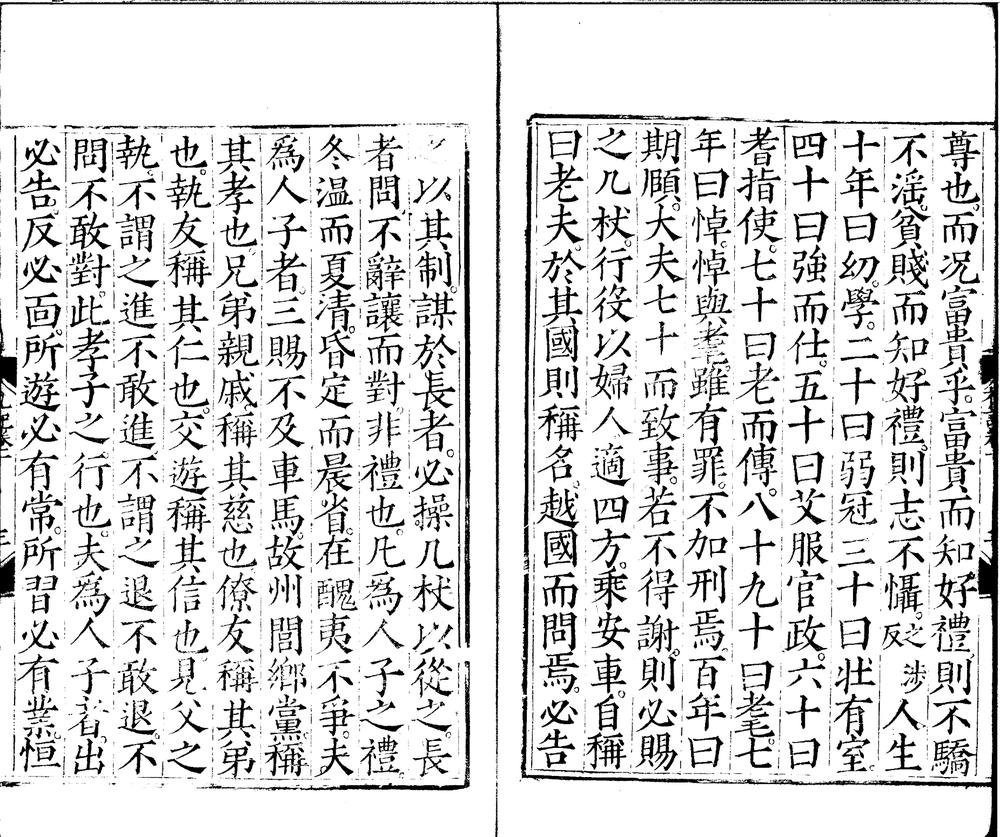 尊也。而况富貴乎。富貴而知好禮。則不驕
不淫。貧賤而知好禮。則志不懾。之涉反人生
十年曰幼。學。二十曰弱冠。三十曰壯有室。
四十曰強而仕。五十曰艾服官政。六十曰
耆指使。七十曰老而傳。八十九十曰耄。七
年曰悼。悼與耄。雖有罪。不加刑焉。百年曰
期頤。大夫七十而致事。若不得謝。則必賜
之几杖。行役以婦人。適四方。乗安車。自稱
曰老夫。於其國則稱名。越國而問焉。必告
之以其制。謀於長者。必操几杖以從之。長
者問。不辭讓而對。非禮也。凡為人子之禮。
冬温而夏凊。昏定而晨省。在醜夷不爭。夫
為人子者。三賜不及車馬。故州閭鄉黨稱
其孝也。兄弟親戚。稱其慈也。僚友稱其弟
也。執友稱其仁也。交遊稱其信也。見父之
執。不謂之進。不敢進。不謂之退。不敢退。不
問不敢對。此孝子之行也。夫為人子者。出
必告。反必面。所遊必有常。所習必有業。恒